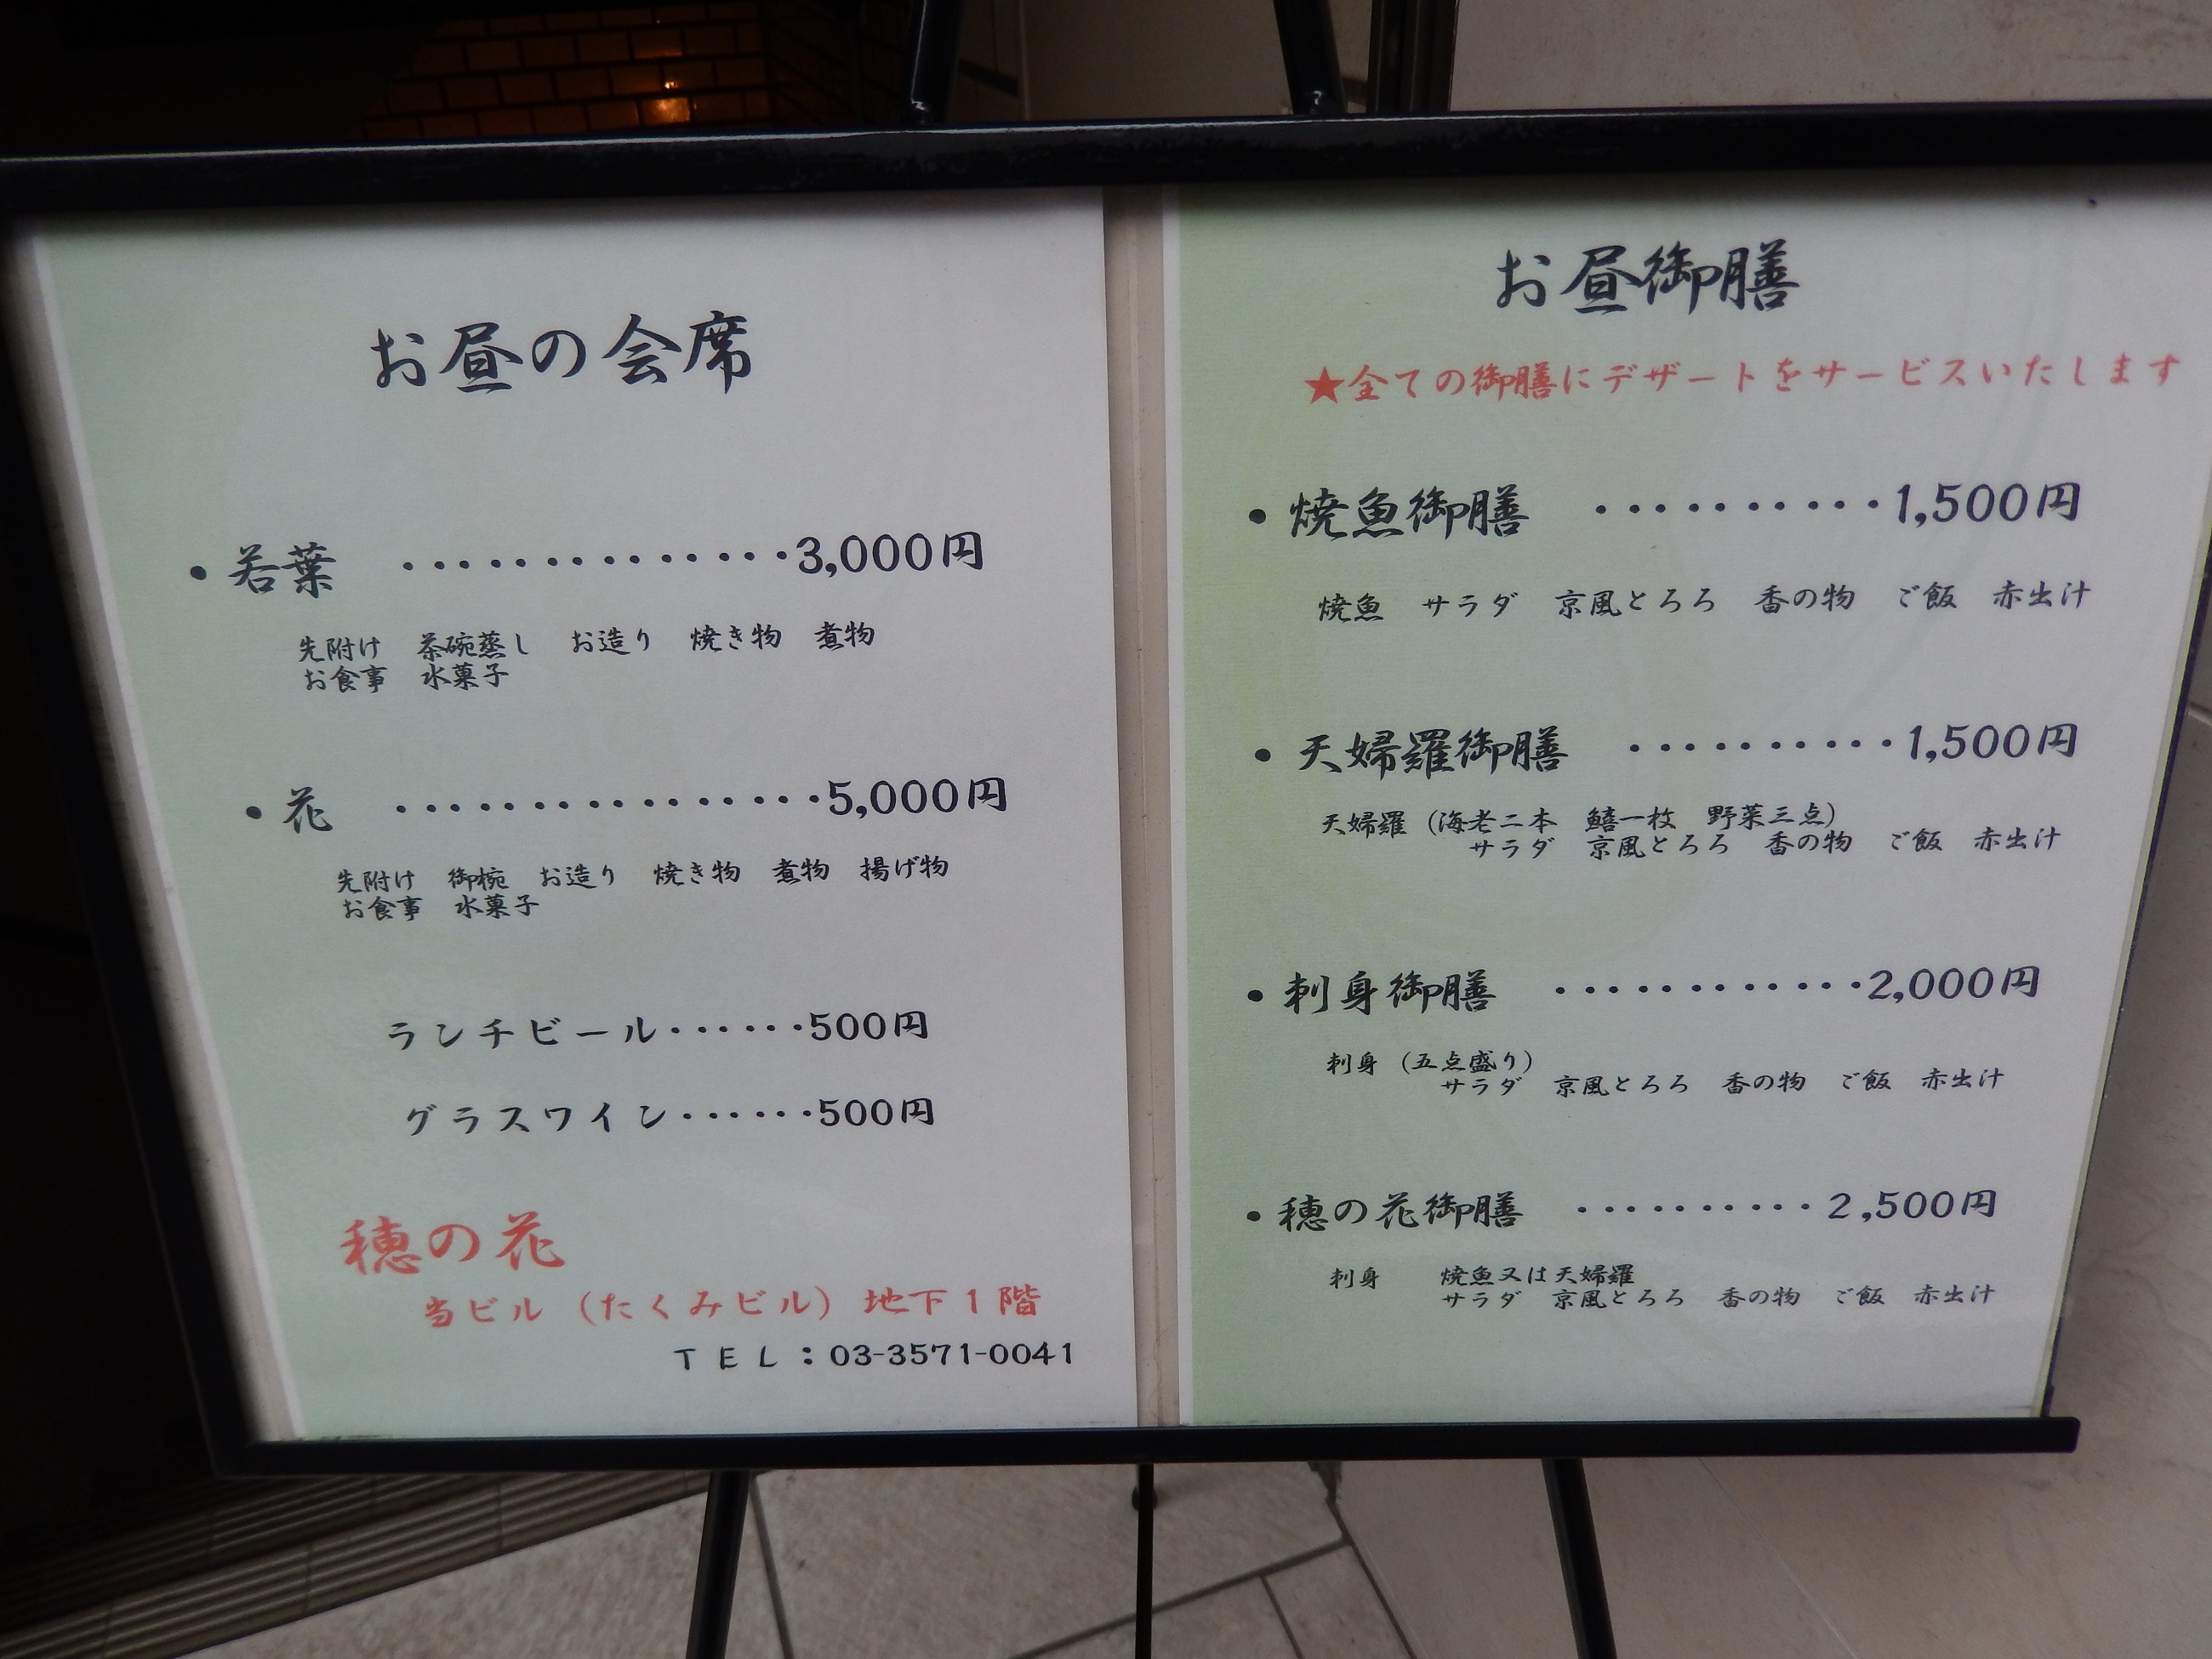 お昼の会席
・若葉 ・・・・・・・・・・・・・・3,000円
先附け 茶碗蒸し お造り 焼き物 煮物
お食事 水菓子
・花 ・・・・・・・・・・・・・・・5,000円
先附け 御椀 お造り 焼き物 煮物 揚げ物
お食事 水菓子
ランチビール・・・・・・500円
グラスワイン・・・・・・500円
穂の花
当ビル（たくみビル）地下1階
TEL：03-3571-0041
お昼御膳
★全ての御膳にデザートをサービスいたします
・焼魚御膳 ・・・・・・・・・・1,500円
焼魚 サラダ 京風とろろ 香の物 ご飯 赤出汁
・天婦羅御膳 ・・・・・・・・・・1,500円
天婦羅（海老二本 鱚一枚 野菜三点）
サラダ 京風とろろ 香の物 ご飯 赤出汁
・刺身御膳 ・・・・・・・・・・・・2,000円
刺身（五点盛り）
サラダ 京風とろろ 香の物 ご飯 赤出汁
・穂の花御膳 ・・・・・・・・・・2,500円
刺身 焼魚又は天婦羅
サラダ 京風とろろ 香の物 ご飯 赤出汁